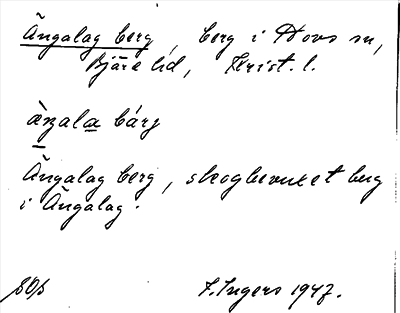 Ängalag berg, berg i Hovs sn,
Bjäre hd, Krist. l.
àŋala bárg
Ängalag berg, skogbevuxet berg
i Ängalag.
F. Ingers 1947.